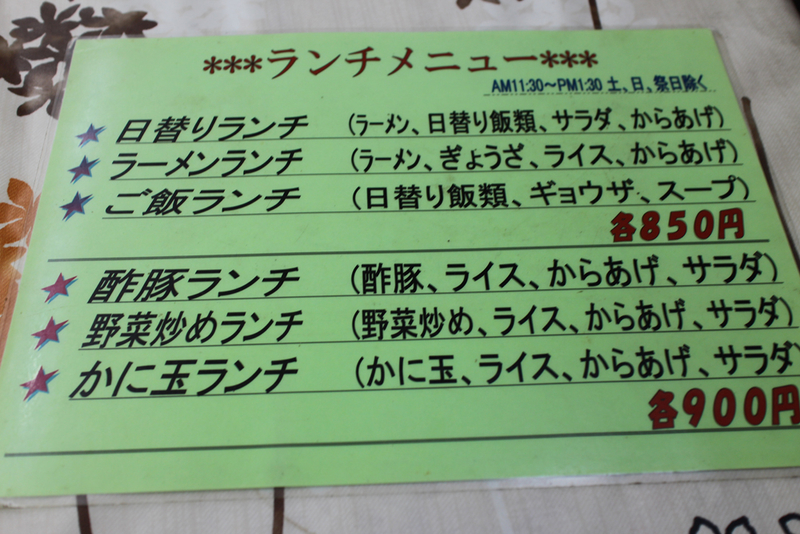 ***ランチメニュー***
AM11:30～PM1:30 土、日、祭日除く
★ 日替りランチ （ラーメン、日替り飯類、サラダ、からあげ）
★ ラーメンランチ （ラーメン、ぎょうざ、ライス、からあげ）
★ ご飯ランチ （日替り飯類、ギョウザ、スープ）
各850円
★ 酢豚ランチ （酢豚、ライス、からあげ、サラダ）
★ 野菜炒めランチ （野菜炒め、ライス、からあげ、サラダ）
★ かに玉ランチ （かに玉、ライス、からあげ、サラダ）
各900円